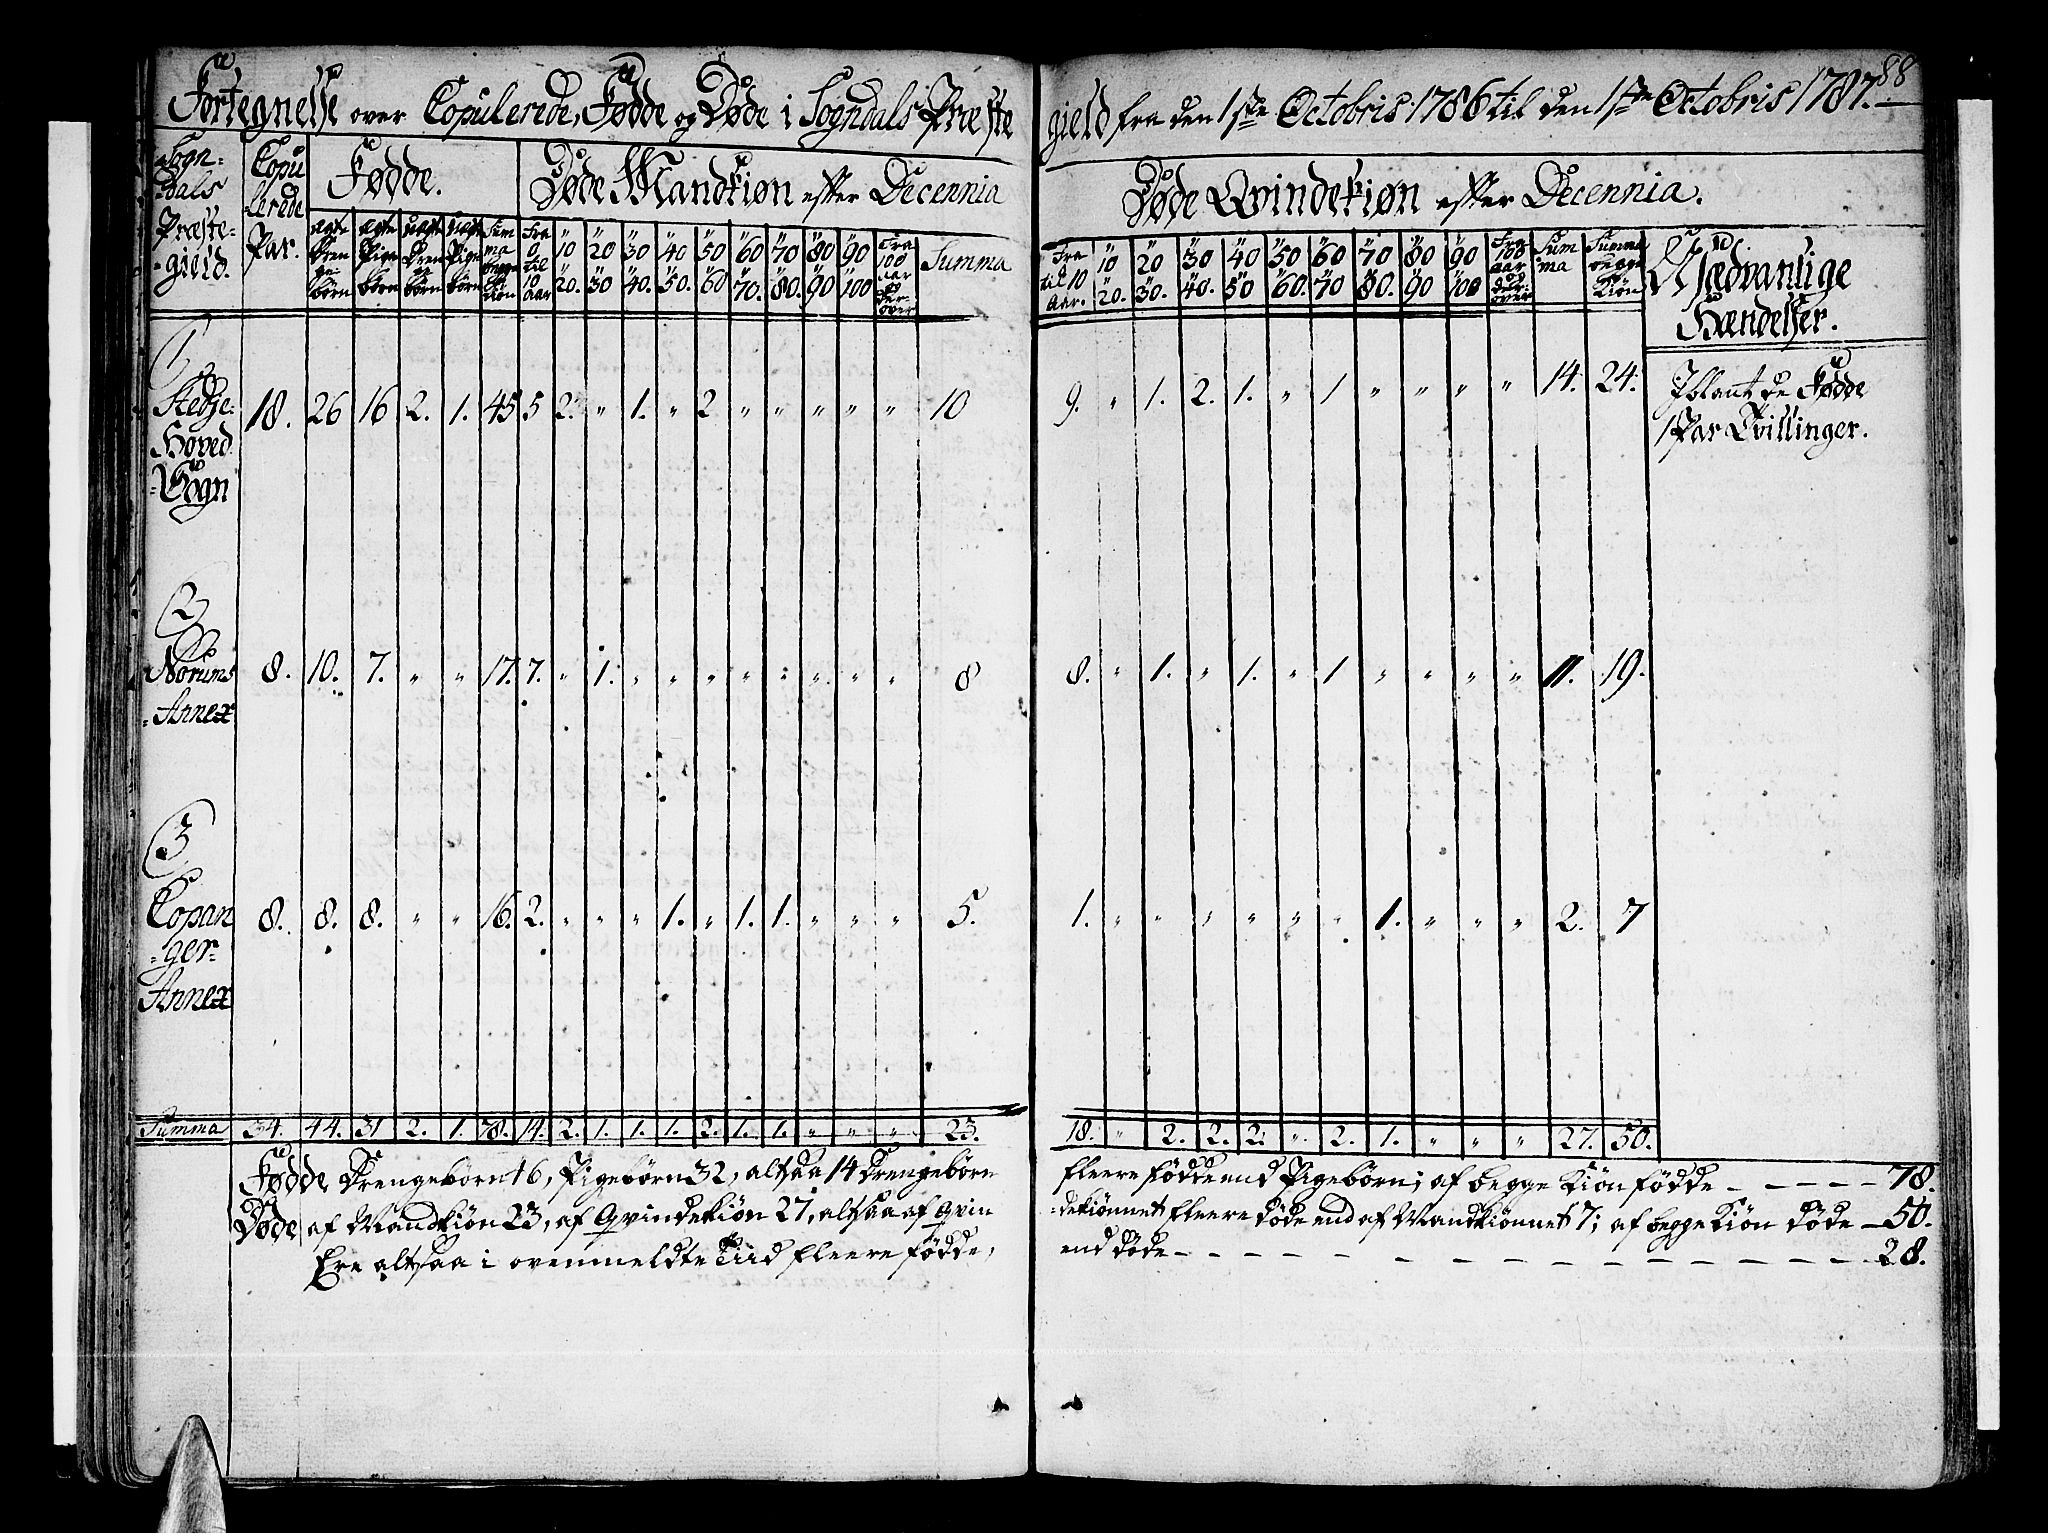 88
Fortegnelse over Copulerede, Fødde og Døde i Sogndals Præste
gield fra den 1ste Octobris 1786 til den 1ste Octobris 1787.
Sogn-
dals
Præste-
gield.
Copu
lerede
Par.
Fødde.
Døde Mandkiøn efter Decennia
ægte Drenge-børn | ægte Pige børn | uægte Drenge børn | uægte Pige børn | Summa begge Kiøn | Fra 0 til 10 Aar | " 10 " 20. | " 20 " 30 | " 30 " 40. | " 40 " 50. | " 50 " 60 | " 60 " 70. | " 70 " 80. | " 80 " 90 | " 90 " 100 | Fra 100 aar og der-over | Summa
Døde Qvindekiøn efter Decennia.
Fra til 10 Aar. | " 10 " 20. | " 20 " 30. | " 30 " 40. | " 40 " 50 | " 50 " 60. | " 60 " 70 | " 70 " 80. | " 80 " 90 | " 90 " 100 | Fra 100 aar og der-over | Summa | Summa begge Kiøn
Uædvanlige
Hændelser.
1
Stedje
Hoved
Sogn
18. 26 16 2. 1. 45 5 2. " 1. " 2 " " " " " 10
9. " 1. 2. 1. " 1 " " " " 14. 24.
Iblant de Fødde
1 Par Tvillinger.
2
Norums
Annex
8. 10. 7. " " 17. 7. " 1. " " " " " " " " 8
8. " 1. " 1. " 1 " " " " 11. 19.
3
Copan
ger
Annex
8. 8. 8. " " 16. 2. " " " 1. " 1. 1. " " " 5.
1. " " " " " " 1. " " " 2. 7
Summa 34. 44. 31 2. 1. 78. 14. 2. 1. 1. 1. 2. 1. 1. " " " 23.
18. " 2. 2. 2. " 2. 1. " " " 27. 50.
Fødde Drengebørn 46, Pigebørn 32, altsaa 14 Drengebørn
fleere fødde end Pigebørn; af begge Kiøn fødde - - - - - 78.
Døde af Mandkiøn 23, af Qvindekiøn 27, altsaa af Qvin
dekiønnet fleere døde end af Mandkiønnet 7; af begge Kiøn døde - 50.
Ere altsaa i ovenmeldte Tiid fleere fødde,
end døde - - - - - - - - - - - - - 28.